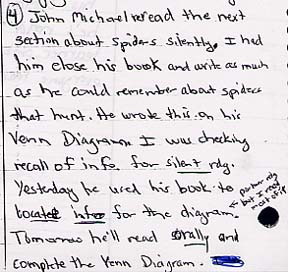 ④ John Michael reread the next
section about spiders silently. I had
him close his book and write as much
as he could remember about spiders
that hunt. He wrote this on his
Venn Diagram. I was checking
recall of info. for silent rdg.
Yesterday he used his book to
locate info for the diagram.
but I read
most of it
Tomorrow he'll read orally and
complete the Venn Diagram.